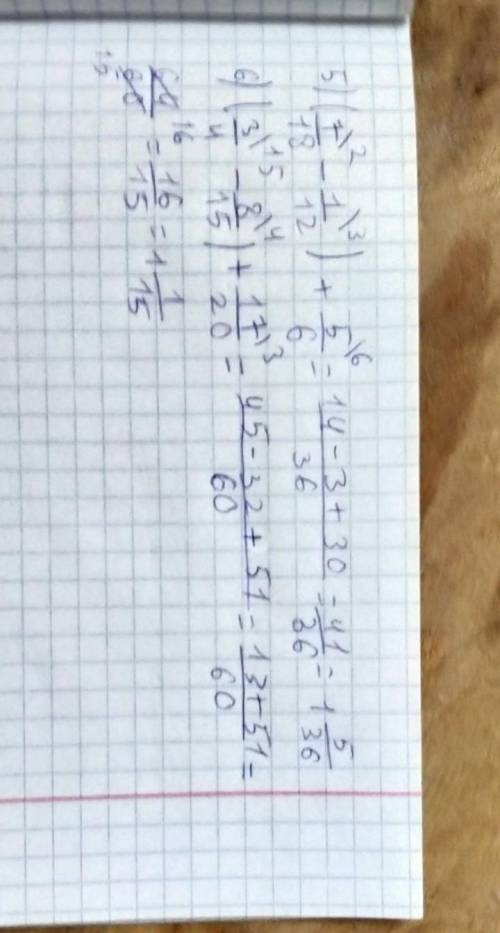 5) (7/18 \2 - 1/12 \3) + 5/6 \6 = (14 - 3 + 30)/36 = 41/36 = 1 5/36
6) (3/4 \15 - 8/15 \4) + 17/20 \3 = (45 - 32 + 51)/60 = (13 + 51)/60 =
64/60 16 15 = 16/15 = 1 1/15